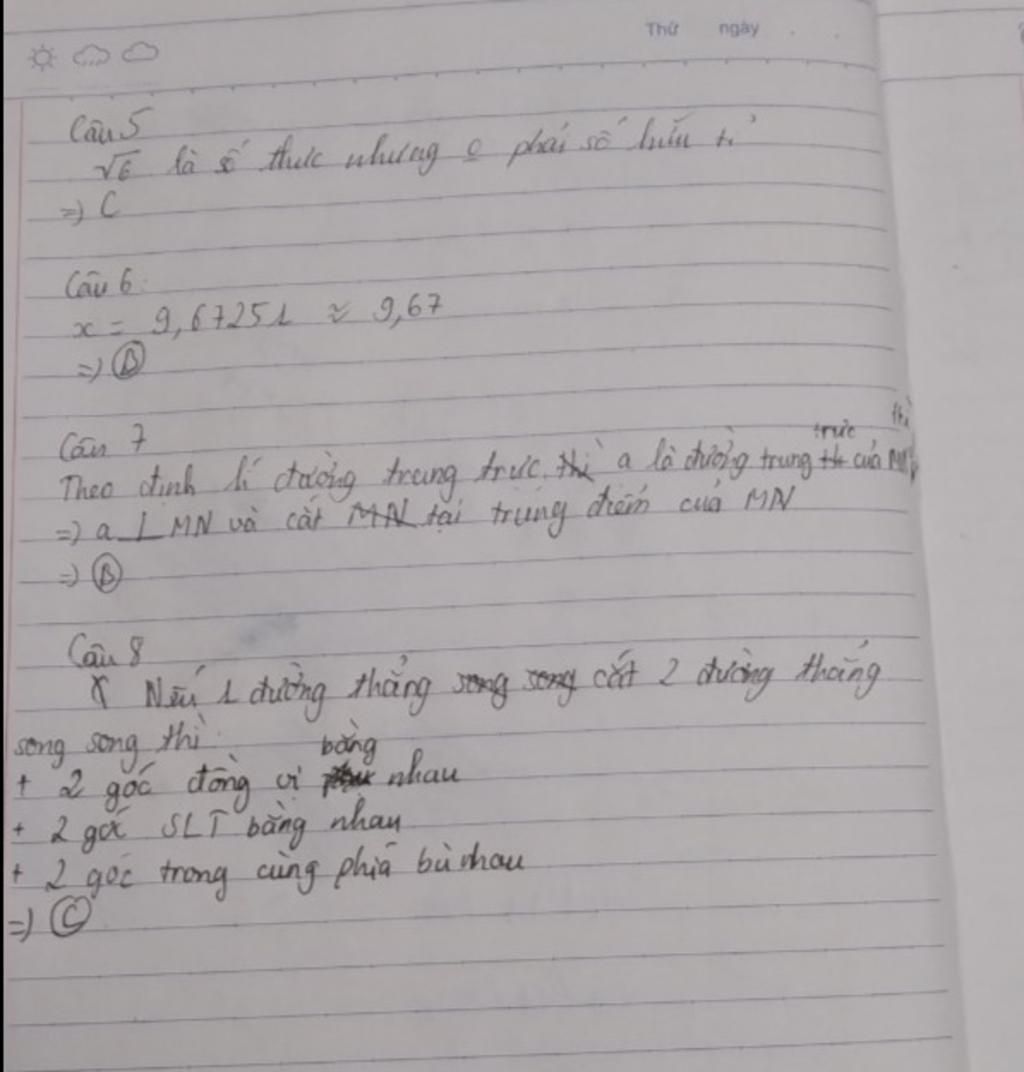 Thứ ngày
Câu 5
√6 là số thực nhưng o phải số hữu tỉ
=) C
Câu 6:
x = 9,67251 ≈ 9,67
=) B
Câu 7
Theo định lí đường trung trực, thì a là đường trung trực của MN thì
=) a ⊥ MN và cắt MN tại trung điểm của MN
=) B
Câu 8
* Nếu 1 đường thẳng song song cắt 2 đường thẳng
song song thì
+ 2 góc đồng vị bằng nhau
+ 2 góc SLT bằng nhau
+ 2 góc trong cùng phía bù nhau
=) C